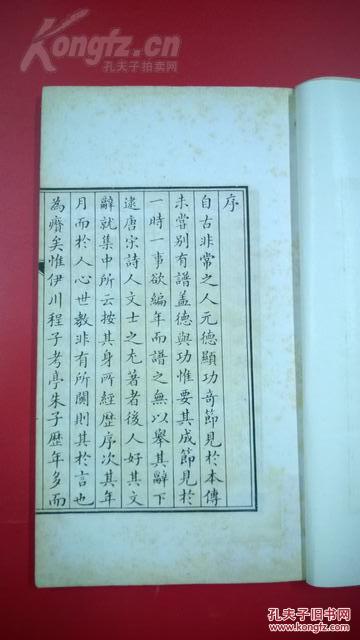 Kongfz.cn
孔夫子拍卖网
序
自古非常之人元德顯功奇節見於本傳
未嘗別有譜盖德與功惟要其成節見於
一時一事欲編年而譜之無以舉其辭下
逮唐宋詩人文士之尤著者後人好其文
辭就集中所云按其身所經歷序次其年
月而於人心世教非有所關則其於言也
為瘠矣惟伊川程子考亭朱子歷年多而
孔夫子旧书网